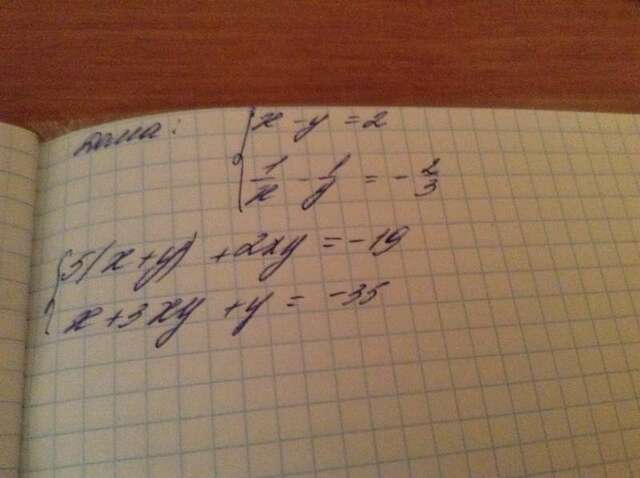 дома: { x - y = 2
1/x - 1/y = - 2/3
{ 5(x+y) + 2xy = -19
x + 3xy + y = -35